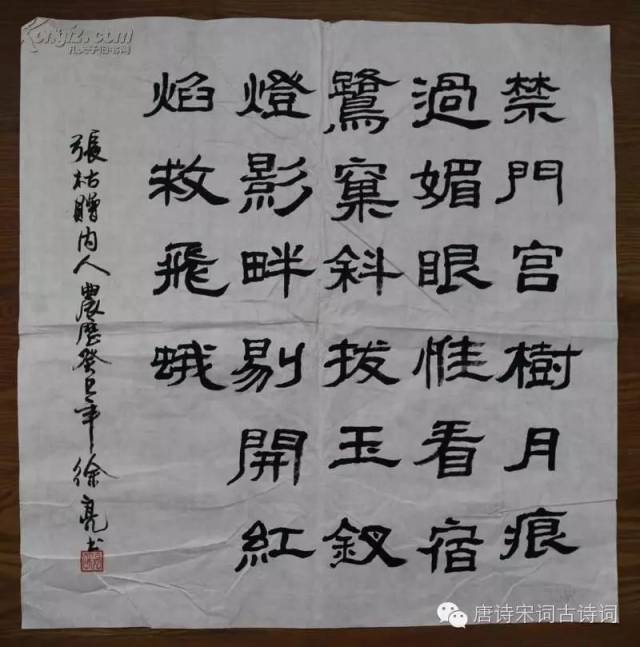 禁門宫樹月痕
過媚眼惟看宿
鷺窠斜拔玉釵
燈影畔剔開紅
焰救飛蛾
張祜贈内人農歷癸巳年徐亮书
Kongfz.com
孔夫子旧书网
唐诗宋词古诗词